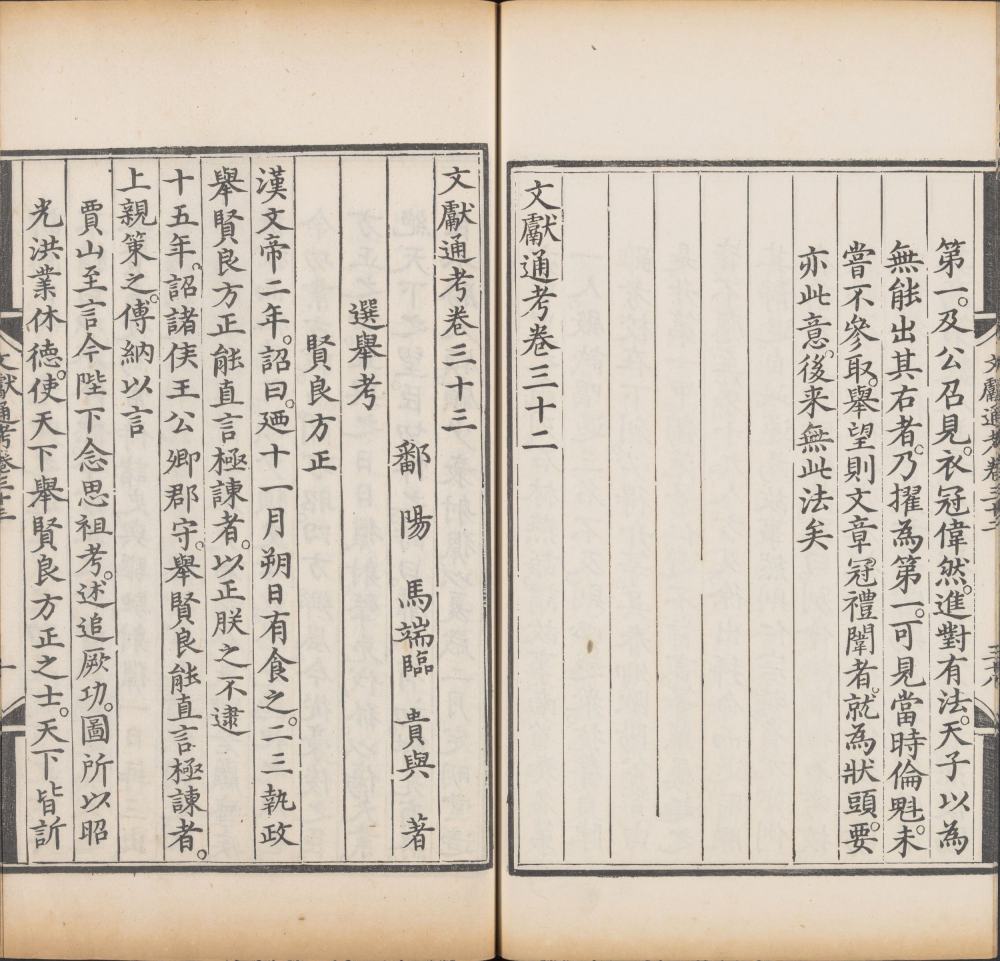 第一。及公召見。衣冠偉然。進對有法。天子以為
無能出其右者。乃擢為第一。可見當時倫魁。未
嘗不參取。舉望則文章冠禮闈者。就為狀頭。要
亦此意。後来無此法矣
文獻通考卷三十二
文獻通考卷三十三
鄱陽 馬端臨 貴與 著
選舉考
賢良方正
漢文帝二年。詔曰。廼十一月朔日有食之。二三執政
舉賢良方正能直言極諫者。以正朕之不逮
十五年。詔諸侯王公卿郡守。舉賢良能直言極諫者。
上親策之。傅納以言
賈山至言今陛下念思祖考。述追厥功。圖所以昭
光洪業休德。使天下舉賢良方正之士。天下皆訢
文獻通考卷三十三